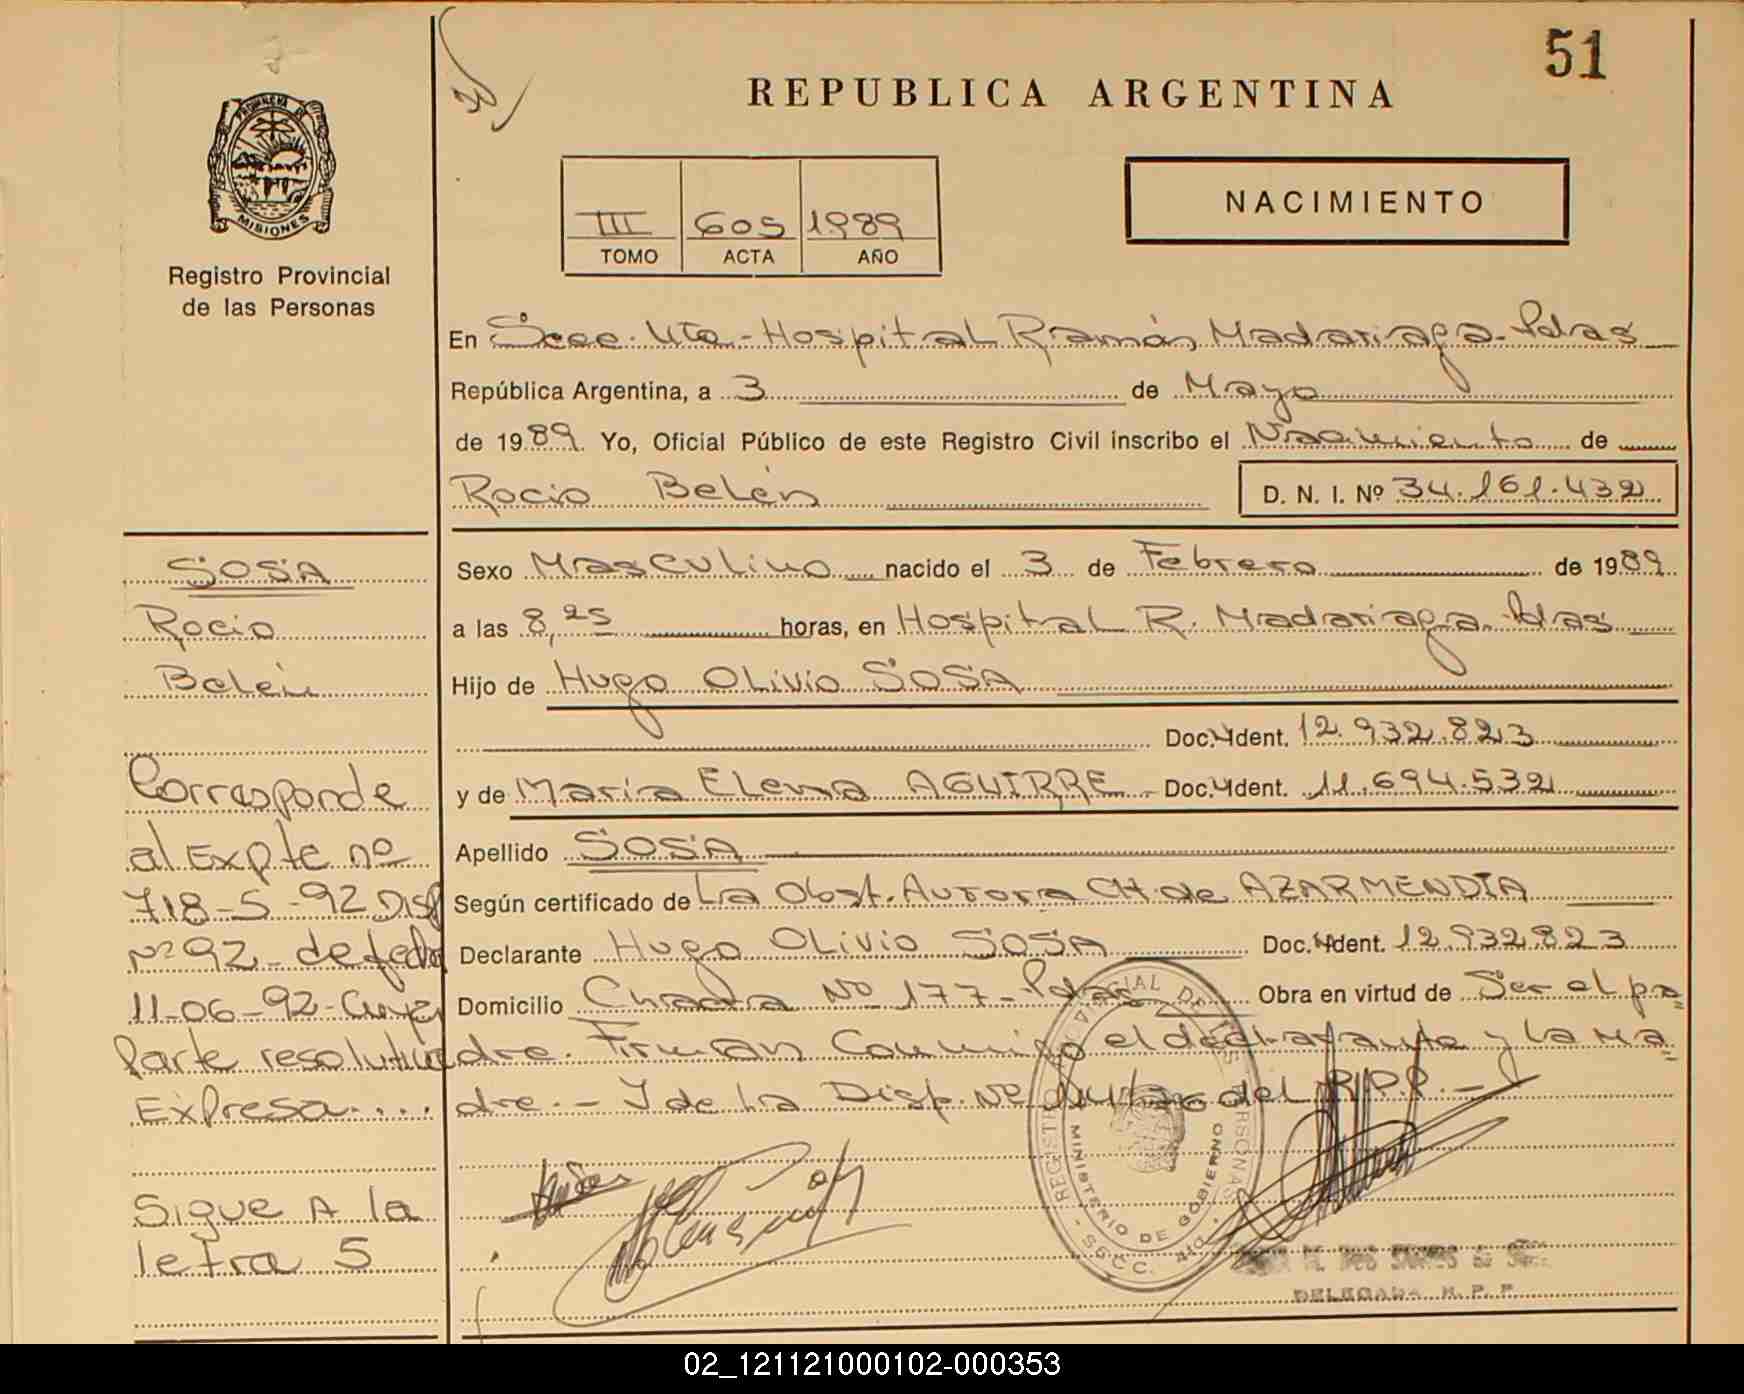 51
REPUBLICA ARGENTINA
PROVINCIA DE
MISIONES
Registro Provincial
de las Personas
III 605 1989
TOMO ACTA AÑO
NACIMIENTO
En Scee. Uta.-Hospital Ramón Madariaga-Pdas
República Argentina, a 3 de Mayo
de 1989 Yo, Oficial Público de este Registro Civil inscribo el Nacimiento de
Rocio Belén D. N. I. Nº 34.161.432
Sexo Masculino nacido el 3 de Febrero de 1989
a las 8,25 horas, en Hospital R. Madariaga-Pdas
Hijo de Hugo Olivio SOSA
Doc. Ident. 12.932.823
y de María Elena AGUIRRE Doc. Ident. 11.694.532
Apellido SOSA
Según certificado de La Obst. Aurora CH. de AZARMENDIA
Declarante Hugo Olivio SOSA Doc. Ident. 12.932.823
Domicilio Chacra Nº 177-Pdas Obra en virtud de Ser el pa
dre. Firman Conmigo el declarante y la ma
dre.- I de la Disp. Nº del R.P.P.-
SOSA
Rocio
Belén
Corresponde
al Expte nº
718-S-92 Disp
Nº 92- de fecha
11-06-92- Cuya
Parte resolutiva
Expresa....
Sigue A la
letra S
REGISTRO PROVINCIAL DE LAS PERSONAS
MINISTERIO DE GOBIERNO
DELEGADA R. P. P.
02_121121000102-000353